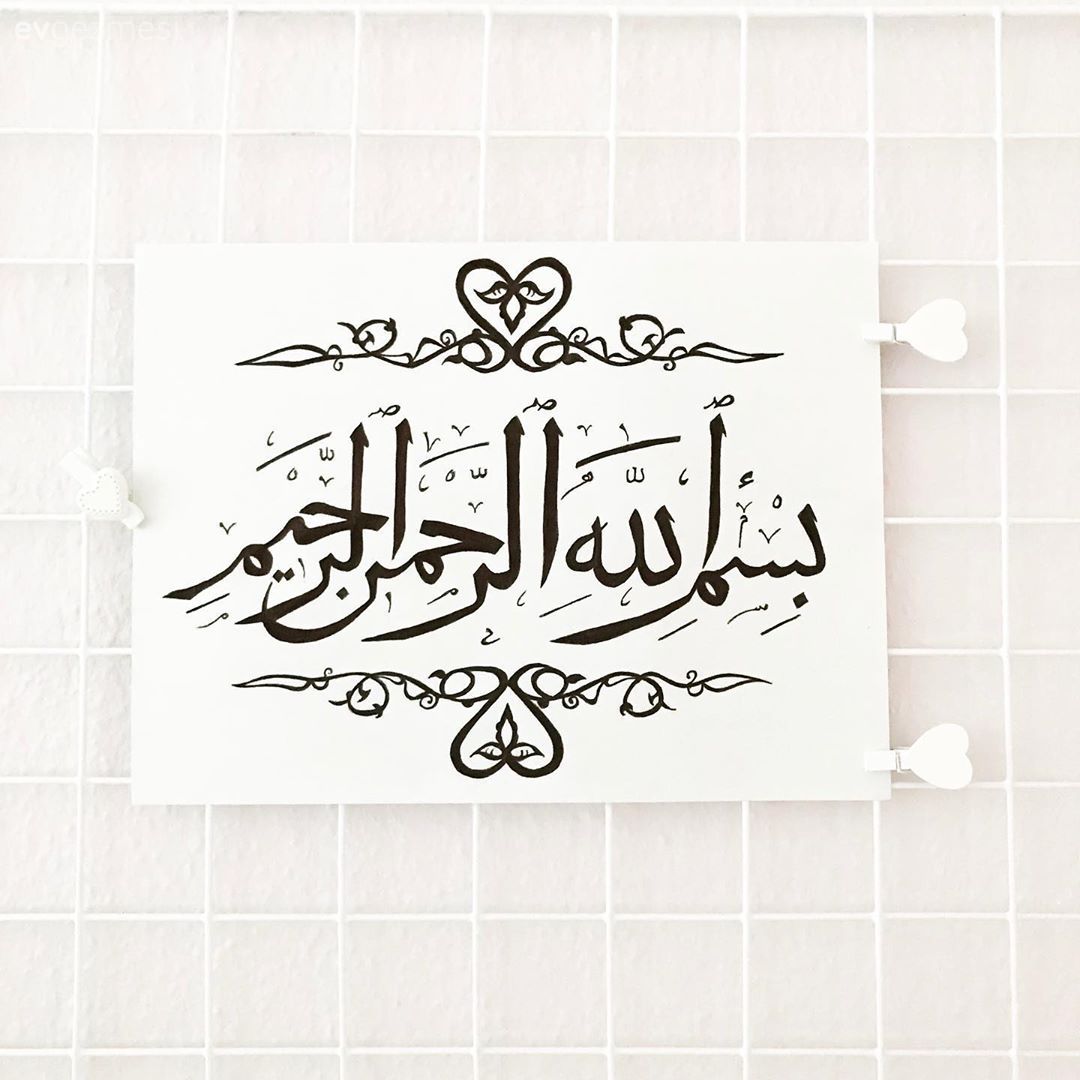 evgezmesi
بِسْمِ ٱللَّهِ ٱلرَّحْمَٰنِ ٱلرَّحِيمِ